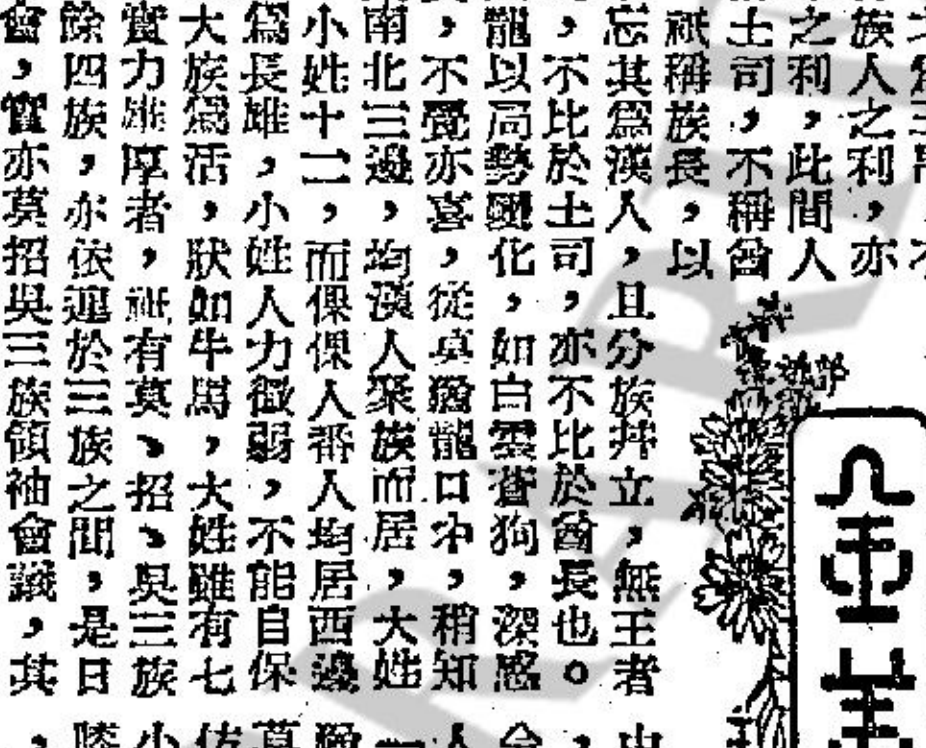 族人之利,亦
之利,此間人
土司,不稱酋
祇稱族長,以
忘其爲漢人,且分族幷立,無王者
,不比於土司,亦不比於酋長也。
龍以局勢變化,如白雲蒼狗,深感
,不覺亦喜,從莫猶龍口中,稍知
南北三邊,均漢人聚族而居,大姓
小姓十二,而倮倮人番人均居西邊
爲長雄,小姓人力微弱,不能自保
大族爲活,狀如牛馬,大姓雖有七
實力雄厚者,祇有莫、招、吳三族
餘四族,亦依違於三族之間,是日
會,實亦莫招吳三族領袖會議,其